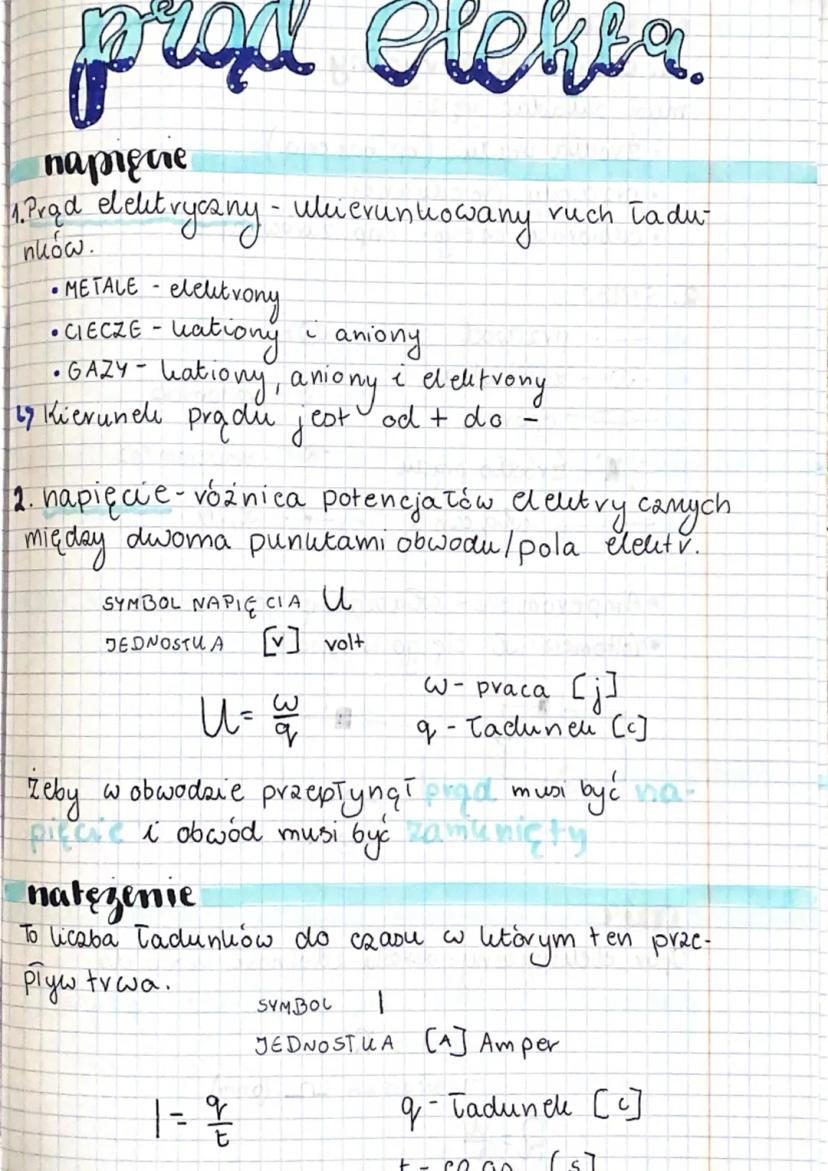 prąd elektr.
napięcie
1. Prąd elektryczny - ukierunkowany ruch ładu-
nków.
• METALE - elektrony
• CIECZE - kationy i aniony
• GAZY - kationy, aniony i elektrony
↳ Kierunek prądu jest od + do -
2. napięcie - różnica potencjałów elektrycznych
między dwoma punktami obwodu/pola elektr.
SYMBOL NAPIĘCIA U
JEDNOSTKA [V] volt
U = W/q
W - praca [j]
q - ładunek [c]
Żeby w obwodzie przepłynął prąd musi być na-
pięcie i obwód musi być zamknięty
natężenie
To liczba ładunków do czasu w którym ten prze-
pływ trwa.
SYMBOL I
JEDNOSTKA [A] Amper
I = q/t
q - ładunek [c]
t - czas [s]